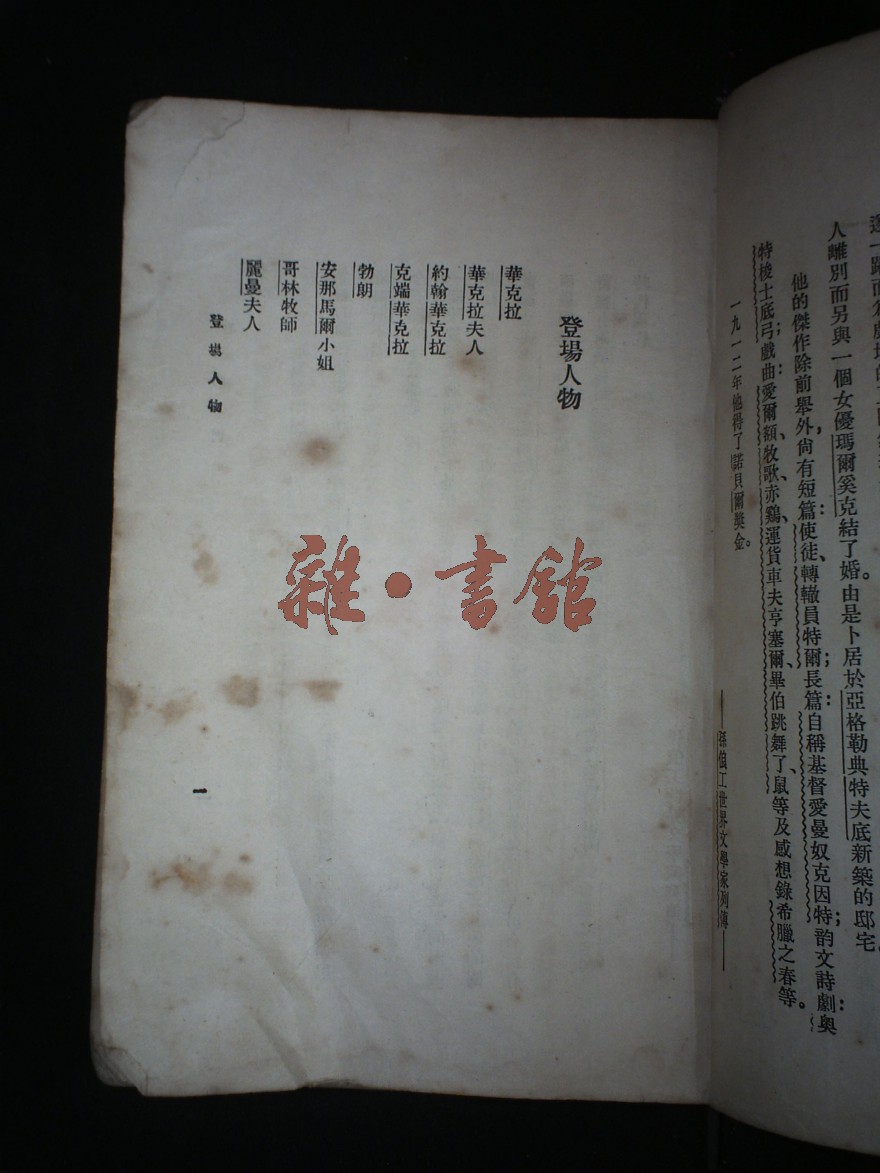 人離別而另與一個女優瑪爾奚克結了婚。由是卜居於亞格勒典特夫底新築的邸宅
他的傑作除前舉外,尙有短篇:使徒、轉轍員特爾;長篇:自稱基督愛曼奴克因特;韵文詩劇:奧
特梭士底弓;戲曲:愛爾額、牧歌、赤鷄、運貨車夫亨塞爾、畢伯跳舞了、鼠等及感想錄希臘之春等。
一九一二年他得了諾貝爾獎金。
——孫俍工世界文學家列傳——
登場人物
華克拉
華克拉夫人
約翰華克拉
克端華克拉
勃朗
安那馬爾小姐
哥林牧師
麗曼夫人
登場人物
一
雜·書館